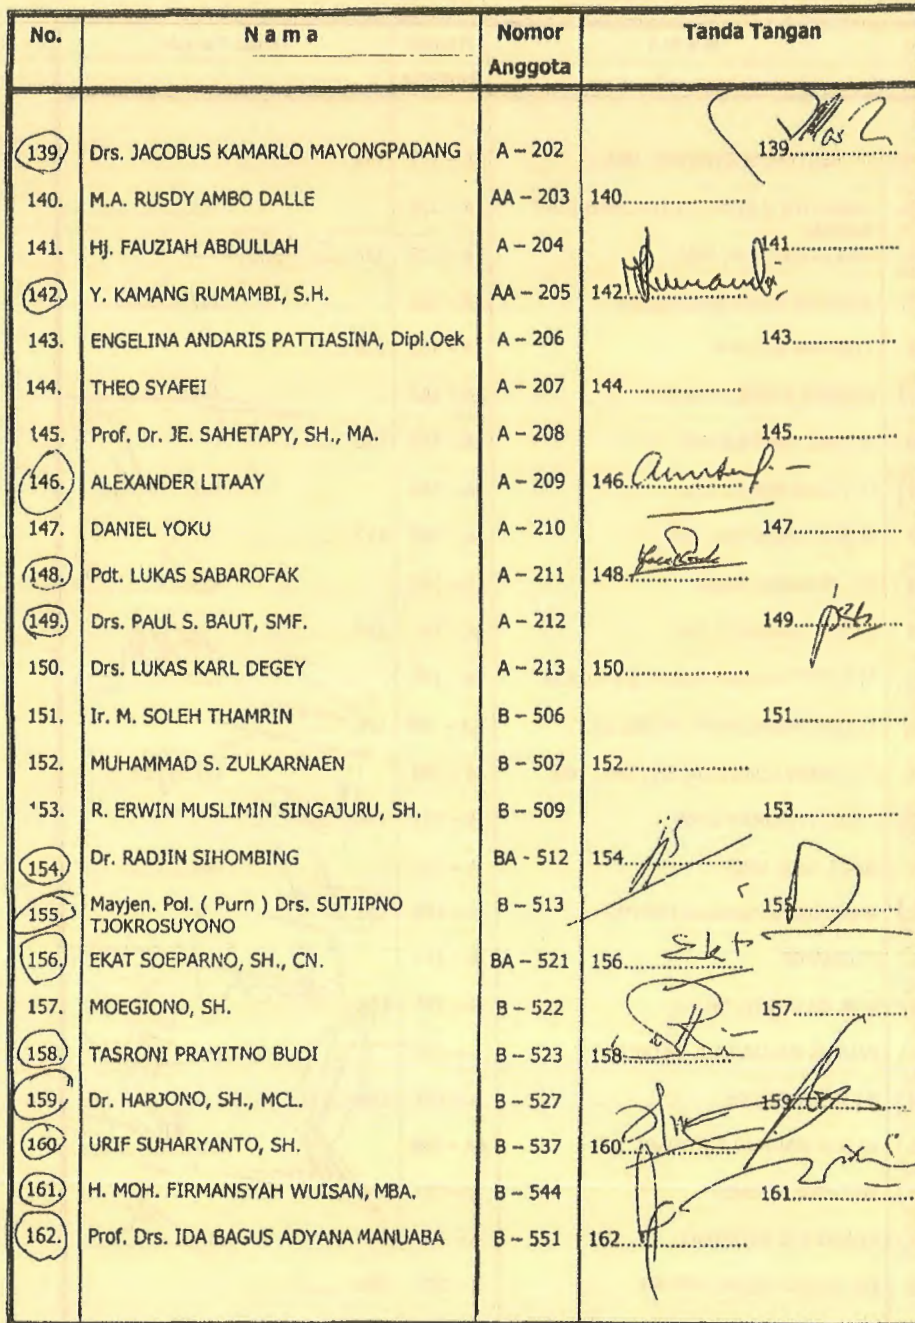 No. Nama Nomor Anggota Tanda Tangan
139. Drs. JACOBUS KAMARLO MAYONGPADANG A – 202 139....................
140. M.A. RUSDY AMBO DALLE AA – 203 140....................
141. Hj. FAUZIAH ABDULLAH A – 204 141....................
142. Y. KAMANG RUMAMBI, S.H. AA – 205 142....................
143. ENGELINA ANDARIS PATTIASINA, Dipl.Oek A – 206 143....................
144. THEO SYAFEI A – 207 144....................
145. Prof. Dr. JE. SAHETAPY, SH., MA. A – 208 145....................
146. ALEXANDER LITAAY A – 209 146....................
147. DANIEL YOKU A – 210 147....................
148. Pdt. LUKAS SABAROFAK A – 211 148....................
149. Drs. PAUL S. BAUT, SMF. A – 212 149....................
150. Drs. LUKAS KARL DEGEY A – 213 150....................
151. Ir. M. SOLEH THAMRIN B – 506 151....................
152. MUHAMMAD S. ZULKARNAEN B – 507 152....................
153. R. ERWIN MUSLIMIN SINGAJURU, SH. B – 509 153....................
154. Dr. RADJIN SIHOMBING BA - 512 154....................
155. Mayjen. Pol. ( Purn ) Drs. SUTJIPNO B – 513 155
TJOKROSUYONO
156. EKAT SOEPARNO, SH., CN. BA – 521 156.
157. MOEGIONO, SH. B – 522 157....................
158. TASRONI PRAYITNO BUDI B – 523 158....................
159. Dr. HARJONO, SH., MCL. B – 527 159....................
160. URIF SUHARYANTO, SH. B – 537 160....................
161. H. MOH. FIRMANSYAH WUISAN, MBA. B – 544 161....................
162. Prof. Drs. IDA BAGUS ADYANA MANUABA B – 551 162....................